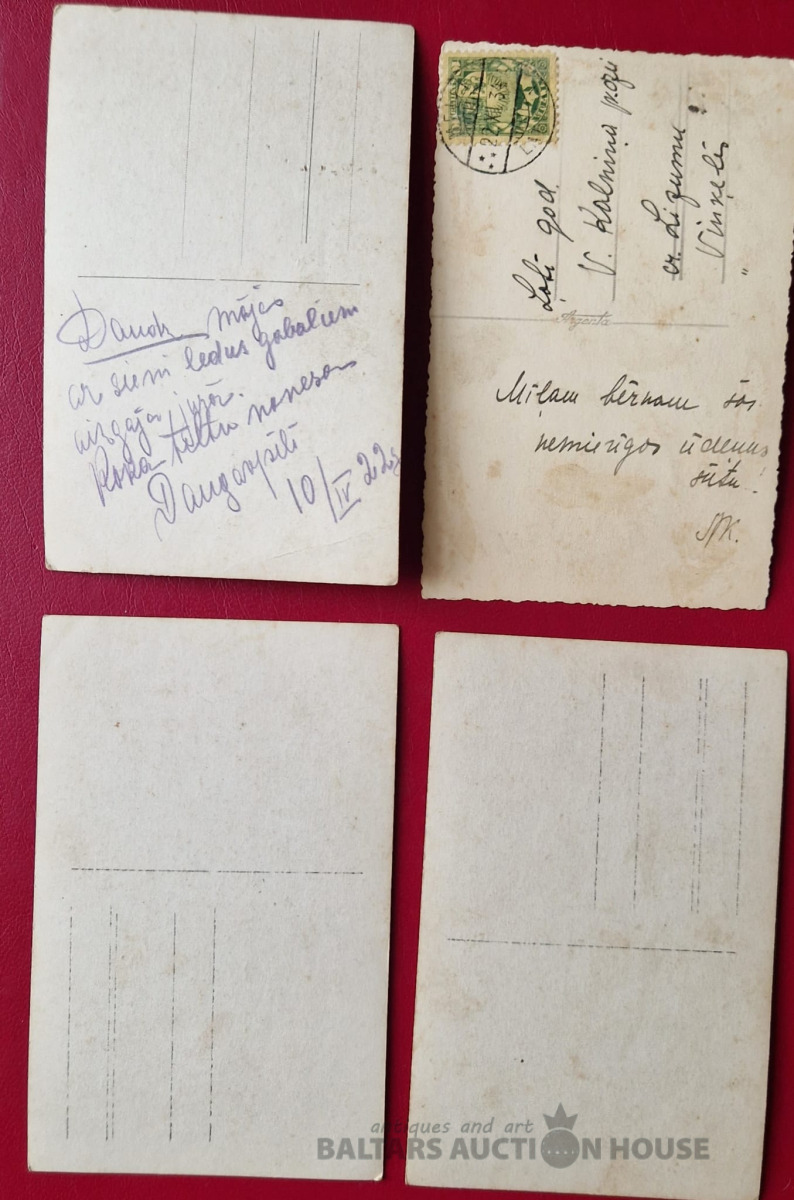 Daudz mājas
ar šiem ledus gabaliem
aizgāja jūrā.
Koka tiltu nonesa
Daugavpilī
10/IV 22g
2 XII 34
Ļoti god.
V. Kalniņa kgei
ar Lizumu
" Viņķelēs
Argenta
Mīļam bērnam šos
nemierīgos ūdeņus
sūtu!
antiques and art
BALTARS AUCTION HOUSE